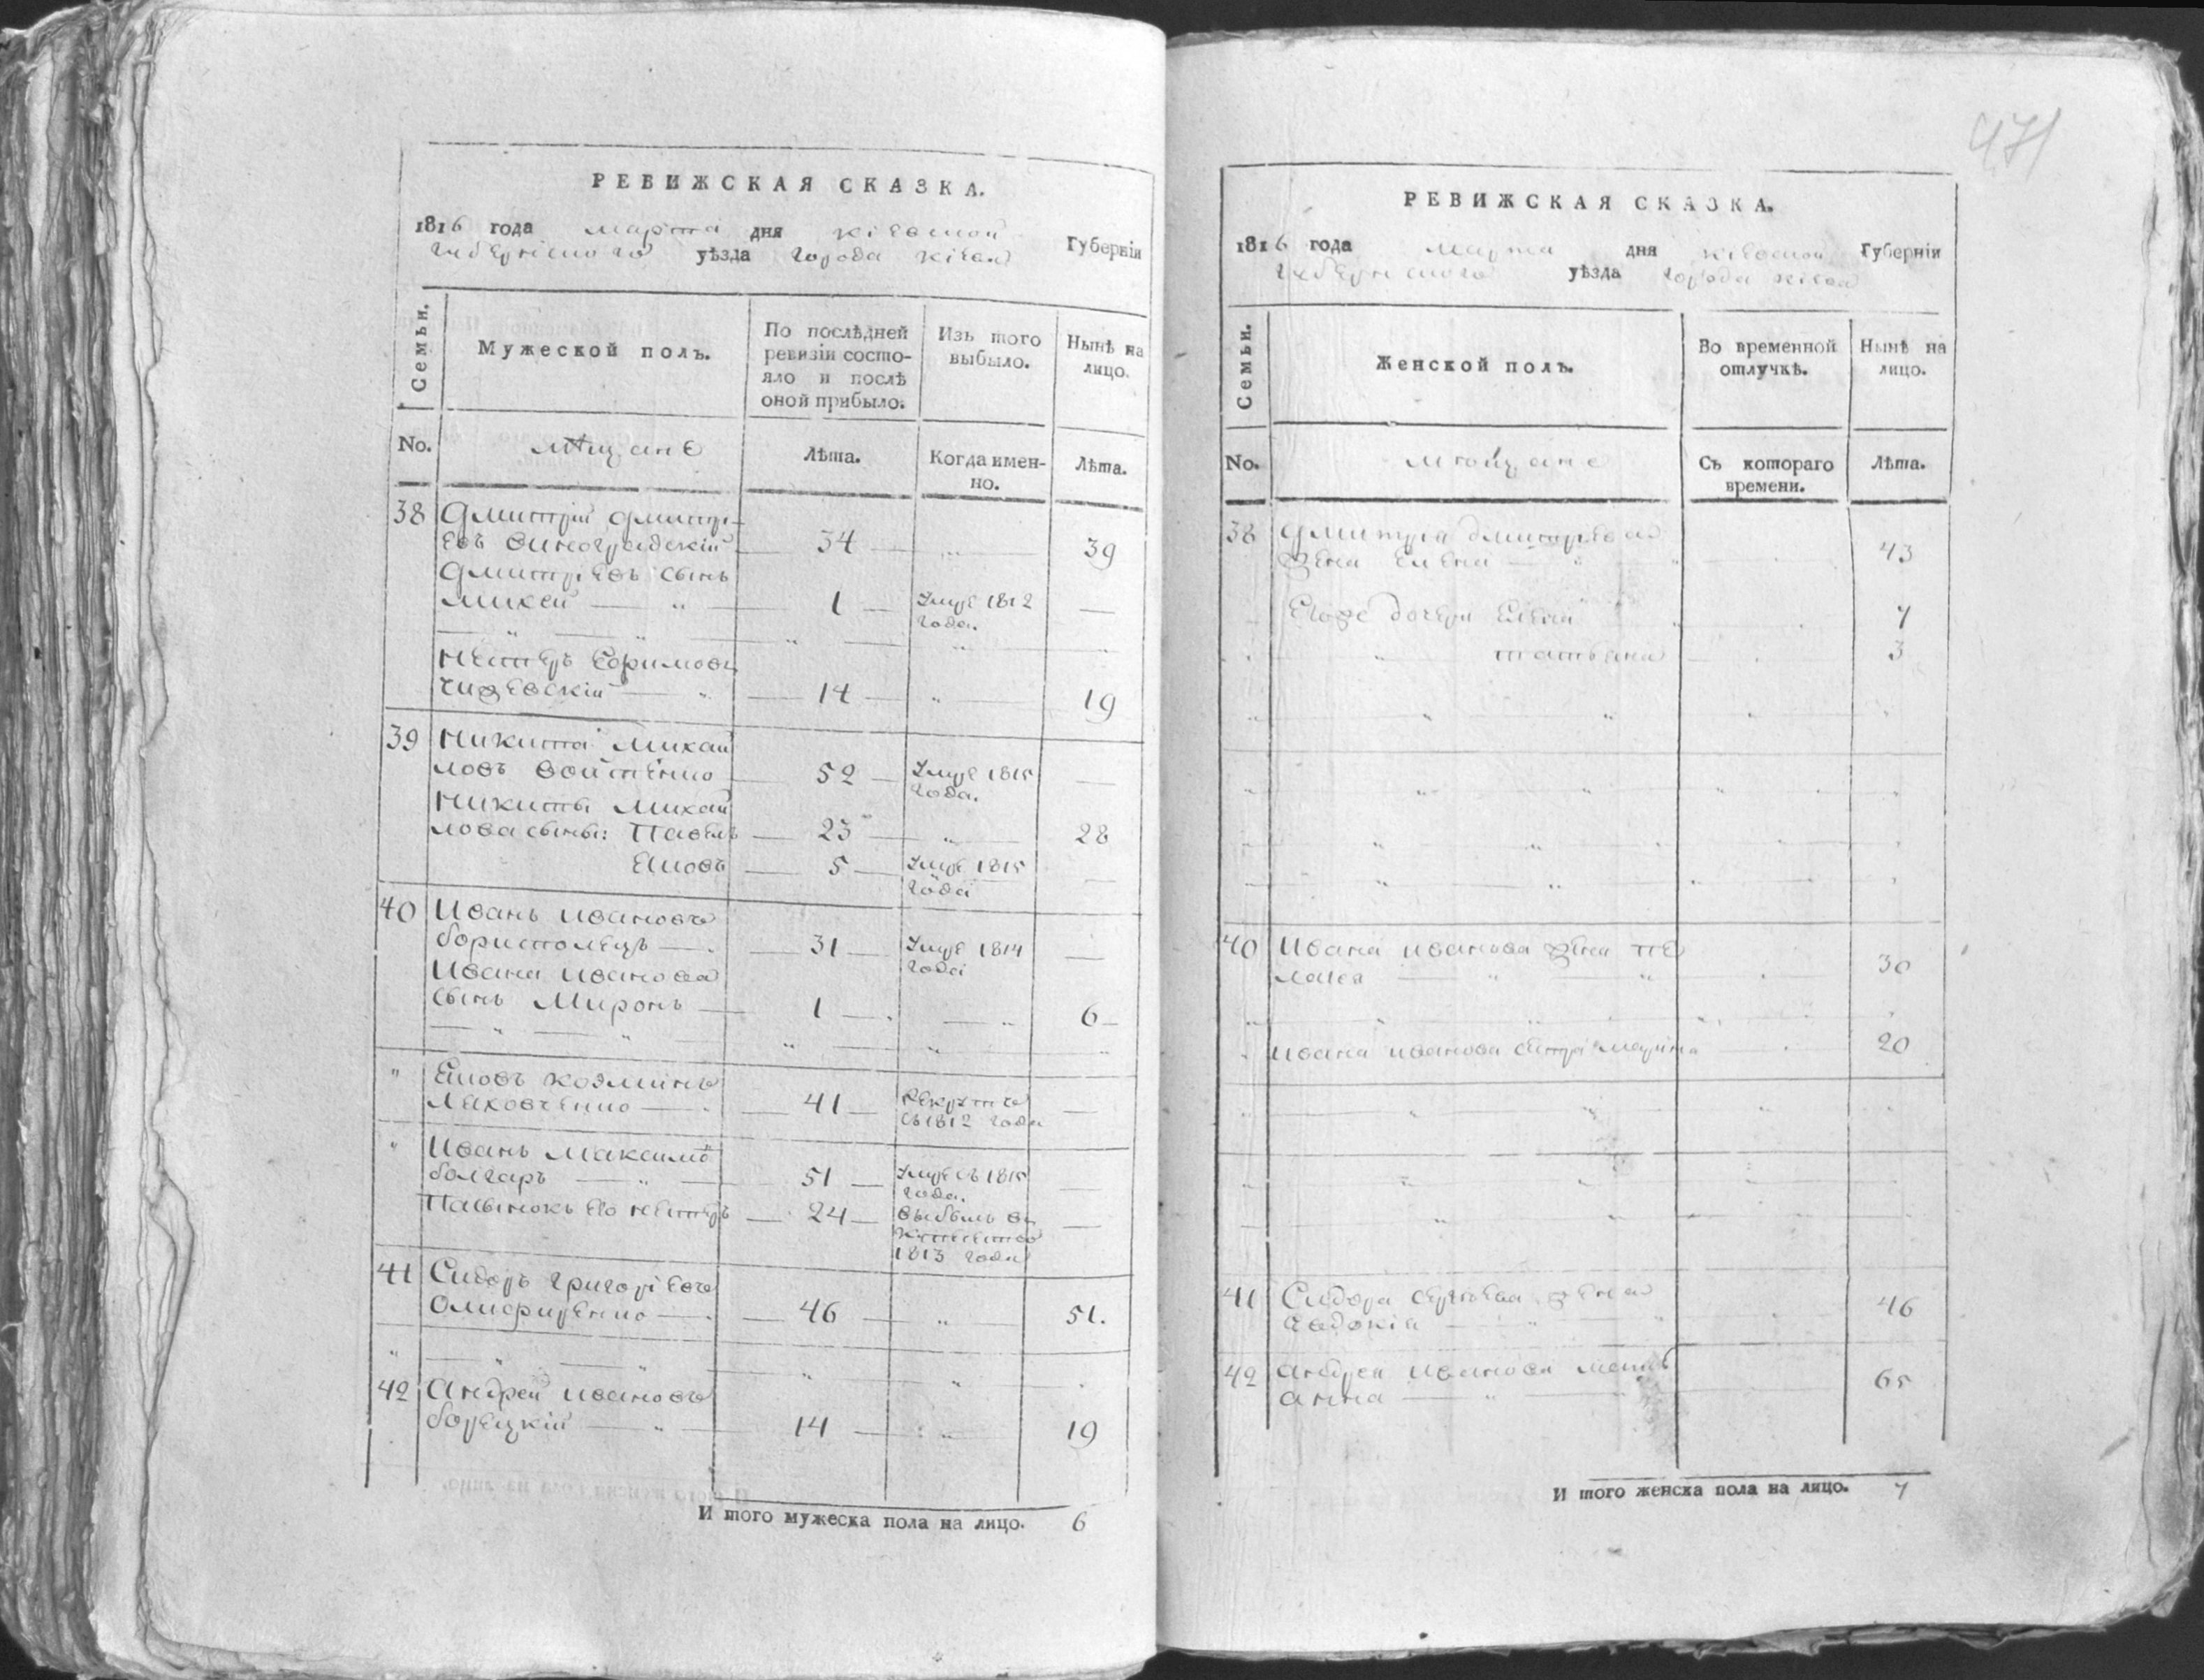 471
РЕВИЖСКАЯ СКАЗКА.
1816 года марта дня кіевской Губерніи
губернского уѣзда города кіева
Семьи.
Мужеской полъ.
По послѣдней ревизіи состояло и послѣ оной прибыло.
Изъ того выбыло.
Нынѣ на лицо.
No. мѣщане Лѣта. Когда именно. Лѣта.
38 Дмитрій дмитрі-
евъ виноградскій 34 39
Дмитріевъ сынъ
микей 1 Умре 1812 года.
Нестеръ Ефимовъ
чижевскій 14 19
39 Никита михай
ловъ войтенко 52 Умре 1815 года.
Никиты михай
лова сыны: Павелъ 23 28
Яковъ 5 Умре 1815 года
40 Иванъ ивановъ
борисполецъ 31 Умре 1814 года
Ивана иванова
сынъ Миронъ 1 6
" Яковъ козминъ
ляховченко 41 рекрутъ съ 1812 года
" Иванъ максимо
болгаръ 51 Умре въ 1815 года.
Пасынокъ его нестеръ 24 выбылъ въ
1813 года
41 Сидоръ григоріевъ
Олиференко 46 51.
42 Андрей ивановъ
борецкій 14 19
И того мужеска пола на лицо. 6
РЕВИЖСКАЯ СКАЗКА.
1816 года марта дня кіевской Губерніи
губернского уѣзда города кіева
Семьи.
Женской полъ.
Во временной отлучкѣ.
Нынѣ на лицо.
No. мѣщане Съ котораго времени. Лѣта.
38 Дмитрія дмитріева
жена Елена 43
Егоже дочери Елена 7
татьяна 3
40 Ивана иванова жена пе
лагея 30
ивана иванова сестра марина 20
41 Сидора жена
Евдокія 46
42 андрея иванова мать
анна 65
И того женска пола на лицо. 7